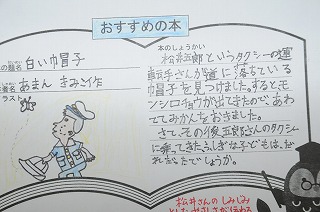 おすすめの本
の題名 白い帽子
著者名 あまん きみこ作
ラスト
本のしょうかい
松井五郎というタクシーの運
転手さんが道に落ちている
帽子を見つけました。するとモ
ンシロチョウが出てきたので、あわ
ててみかんをおきました。
さて、その後五郎さんのタクシー
に乗ってきたふしぎな子どもは、だ
れだったでしょうか。
松井さんのしみじみ